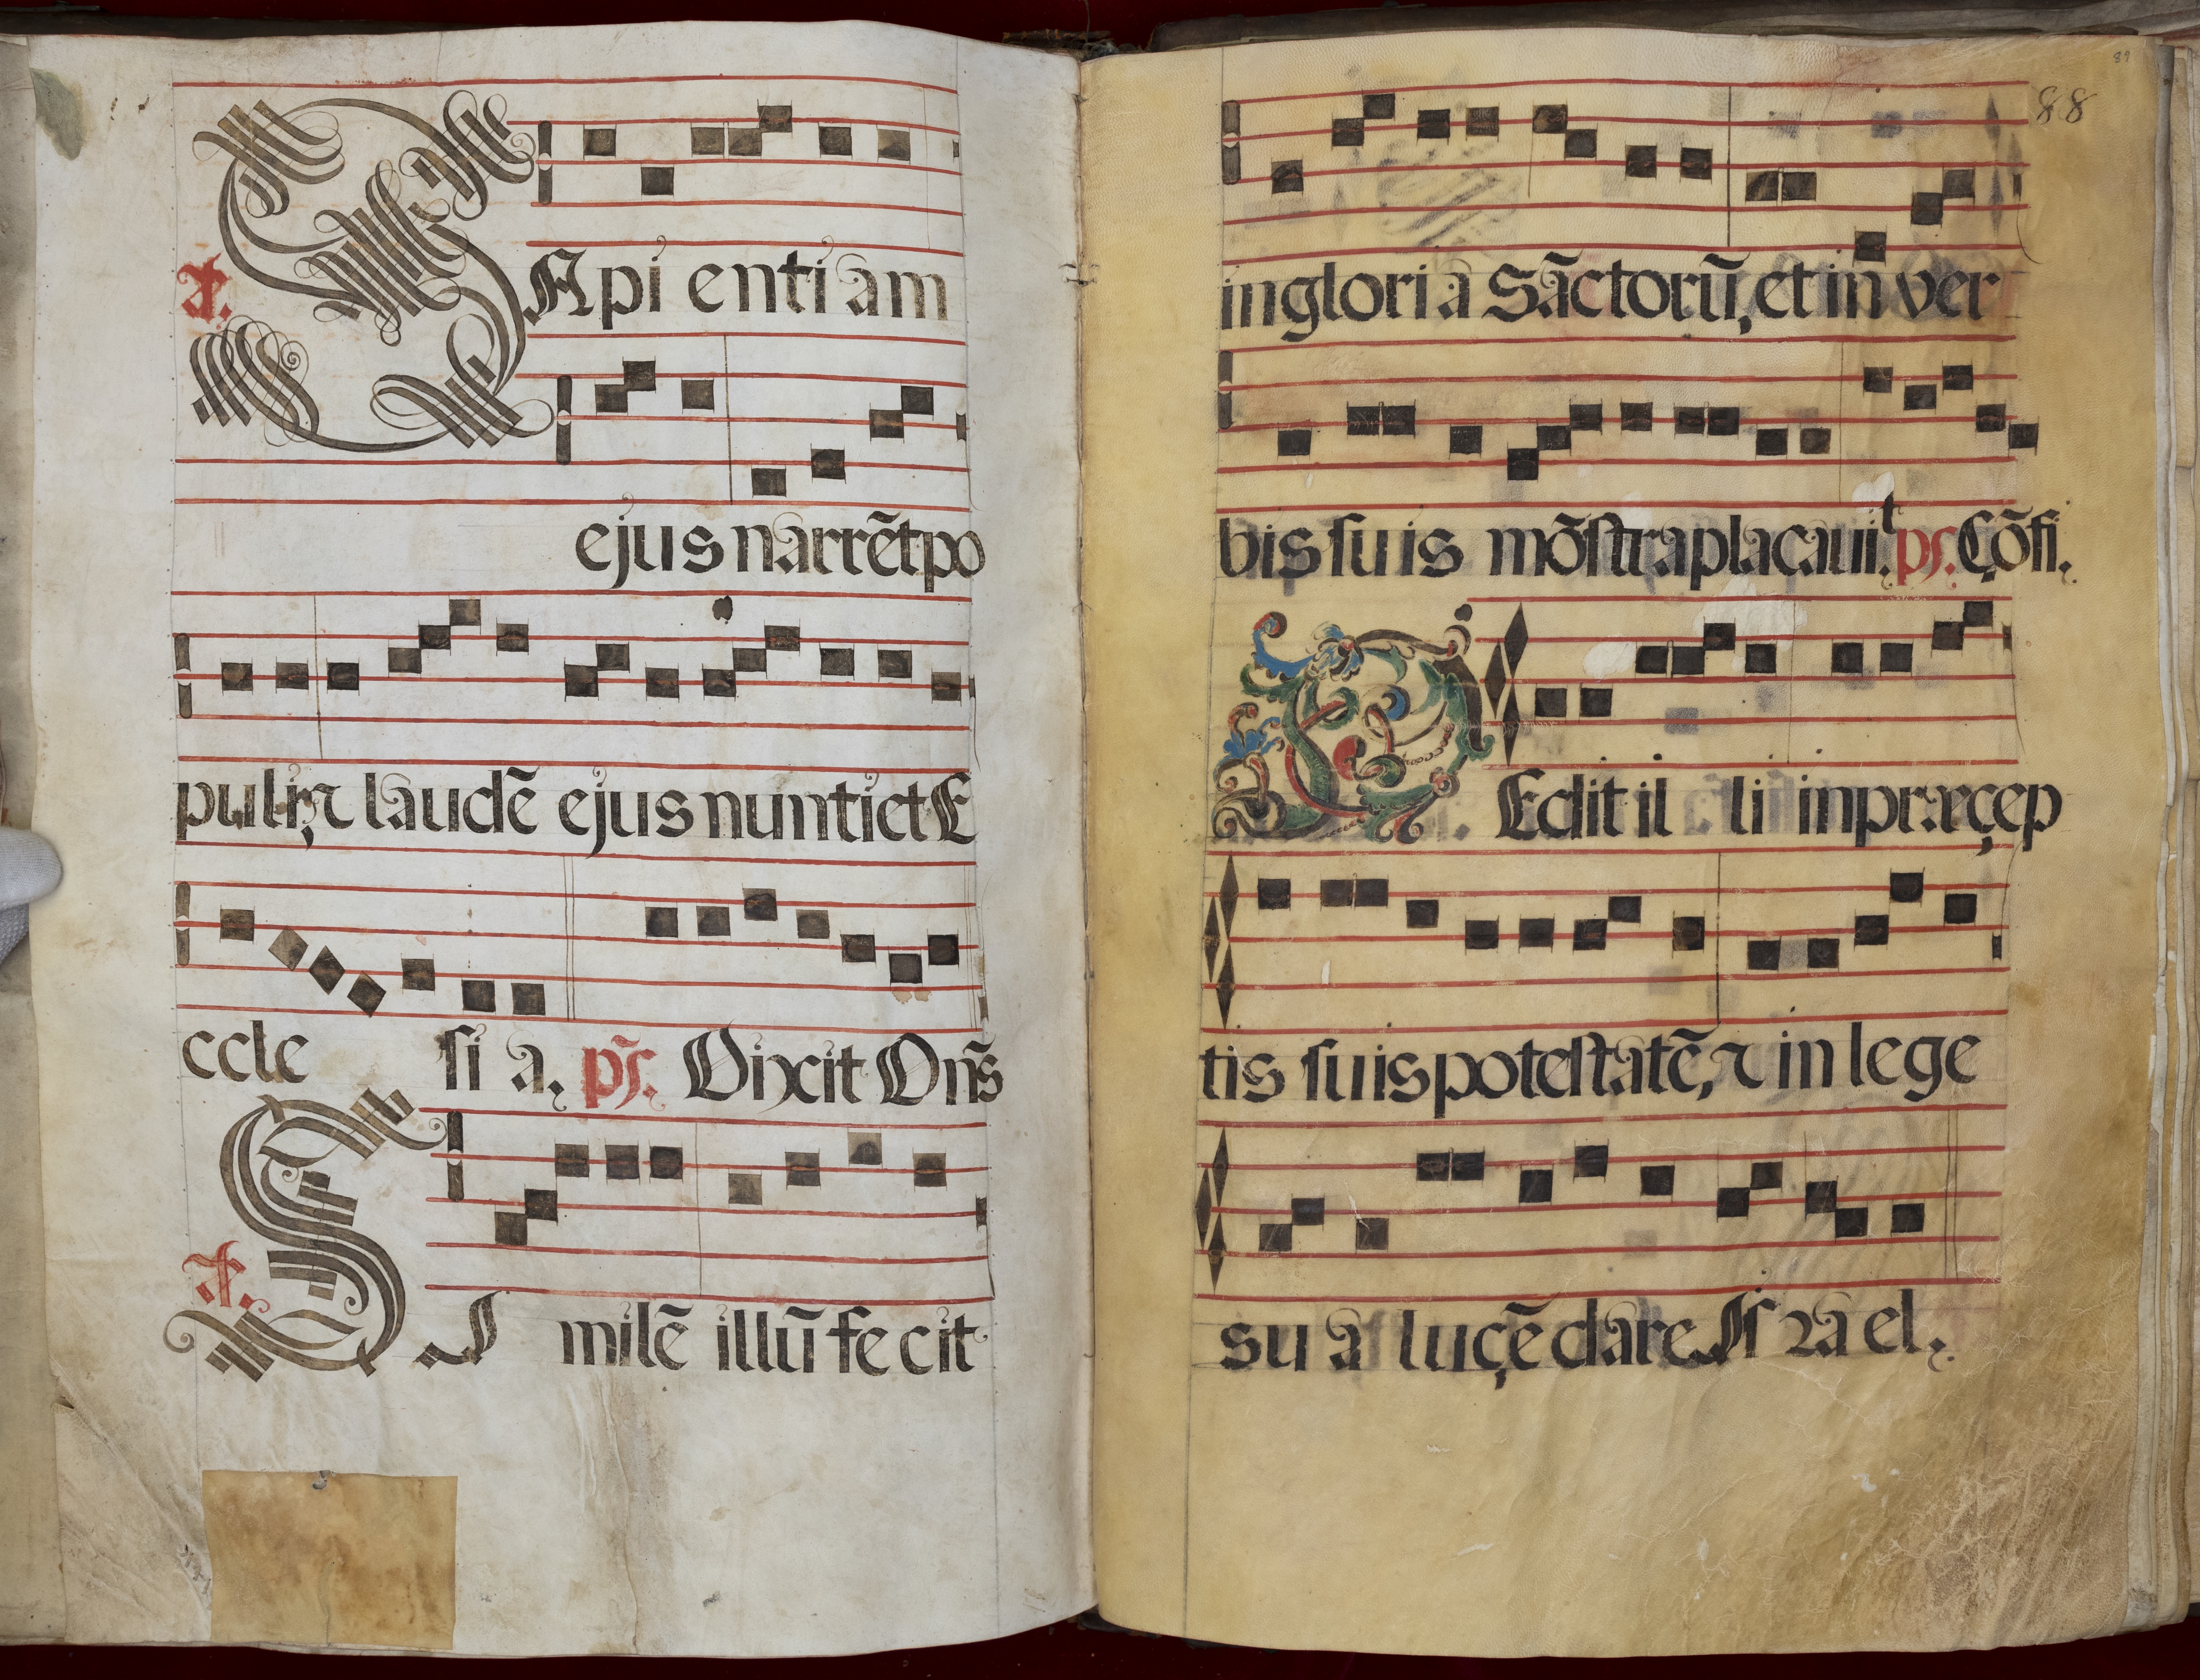 a. SApi entiam
ejus narrẽt po
puli, ꝛ laudẽ ejus nuntiet E
ccle si a. ps̃. Dixit Dñs
a. SI milẽ illũ fe cit
88
89
in glori a Sãctorũ, et in ver
bis ſuis mõſtra plaçauit. ps. Çõfi.
DEdit il li in præçep
tis ſuis poteſtatẽ, ꝛ in lege
su a luçẽ dare Iſ ra el.